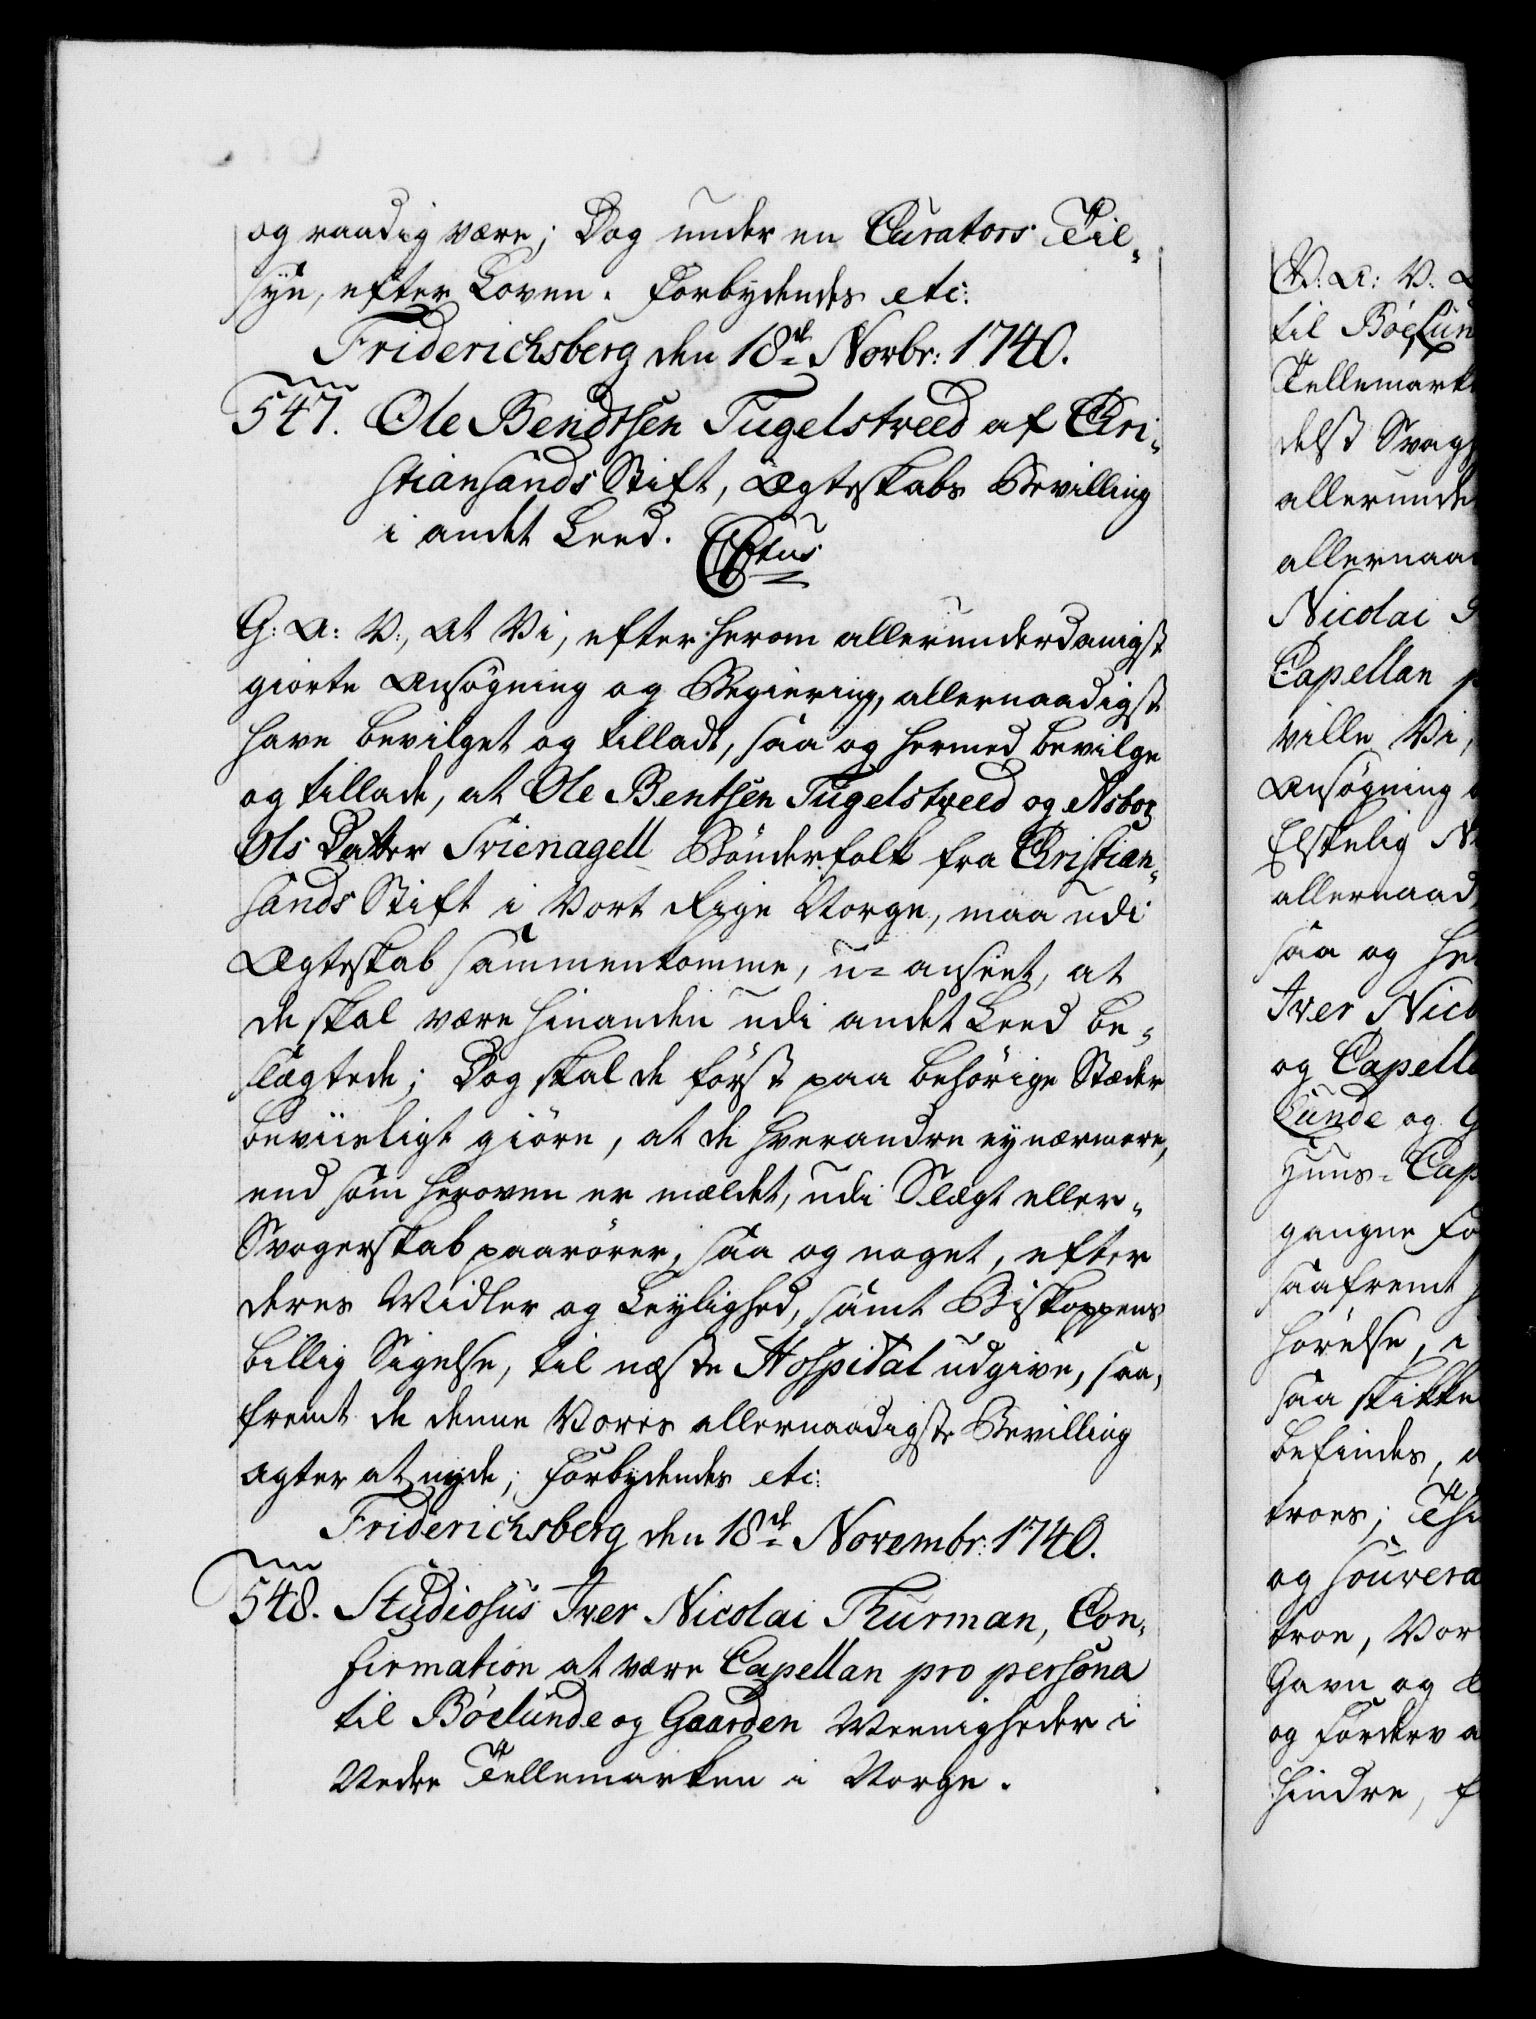 og raadig være; Dog under en Curators Til-
syn, efter Loven. Forbydendes etc:
Friderichsberg den 18de Novbr: 1740.
547. Ole Bendtsen Tugelstveed af Chri-
stiansands Stift, Ægteskabs Bevilling
i andet Leed.
G: A: V:, At Vi, efter herom allerunderdanigst
giorte Ansøgning og Begiering, allernaadigst
have bevilget og tilladt, saa og hermed bevilge
og tillade, at Ole Bentsen Tugelstveed og Asbor
Ols Datter Svienagell Bönderfolk fra Christian-
sands Stift i Vort Rige Norge, maa udi
Ægteskab sammenkomme, u-anseet, at
de skal være hinanden udi andet Leed be-
slægtede; Dog skal de först paa behörige Stæder
beviisligt giöre, at de hverandre ey nærmere,
end som heroven er meldet, udi Slegt eller
Svogerskab paarörer, saa og noget, efter
deres Midler og Leylighed, samt Biskoppens
billig Sigelse, til næste Hospital udgive, saa-
fremt de denne Vores allernaadigste Bevilling
agter at nyde; Forbydendes etc:
Friderichsberg den 18de Novembr: 1740.
548. Studiosus Iver Nicolai Thurman, Con-
firmation at være Capellan pro persona
til Böelunde og Gaarden Meenigheder i
Nedre Tellemarken i Norge.
V: A: V.
til Böelun
Tellemark
delst Svag
allerunde
allernaa
Nicolai
Capellan p
ville Vi,
Ansøgning
Elskelig N
allernaad
saa og he
Iver Nico
og Capella
Lunde og G
Huus-Cap
gangne Fo
saafremt
hörelse, i
saa skikke
befindes,
troes; Thi
og souvera
troe, Vor
Gavn og
og Forderv a
hindre, f